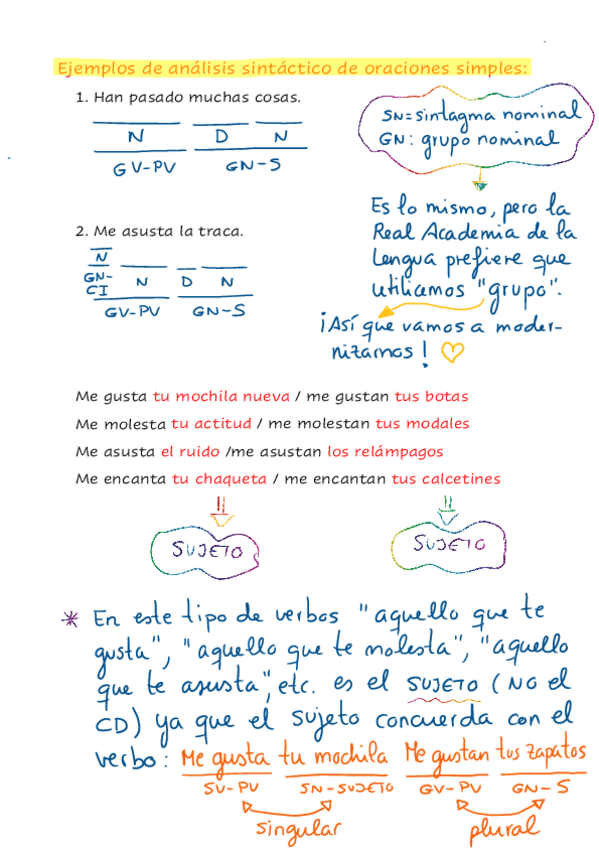 Ejemplos de análisis sintáctico de oraciones simples:
1. Han pasado muchas cosas.
N D N
GV-PV GN-S
SN=sintagma nominal
GN: grupo nominal
Es lo mismo, pero la
Real Academia de la
Lengua prefiere que
utilicemos "grupo".
¡Así que vamos a moder-
nizarnos!
2. Me asusta la traca.
N
GN-
CI N D N
GV-PV GN-S
Me gusta tu mochila nueva / me gustan tus botas
Me molesta tu actitud / me molestan tus modales
Me asusta el ruido /me asustan los relámpagos
Me encanta tu chaqueta / me encantan tus calcetines
SUJETO SUJETO
* En este tipo de verbos "aquello que te
gusta", "aquello que te molesta", "aquello
que te asusta", etc. es el SUJETO (NO el
CD) ya que el sujeto concuerda con el
verbo: Me gusta tu mochila Me gustan tus zapatos
SV-PV SN-SUJETO GV-PV GN-S
singular plural